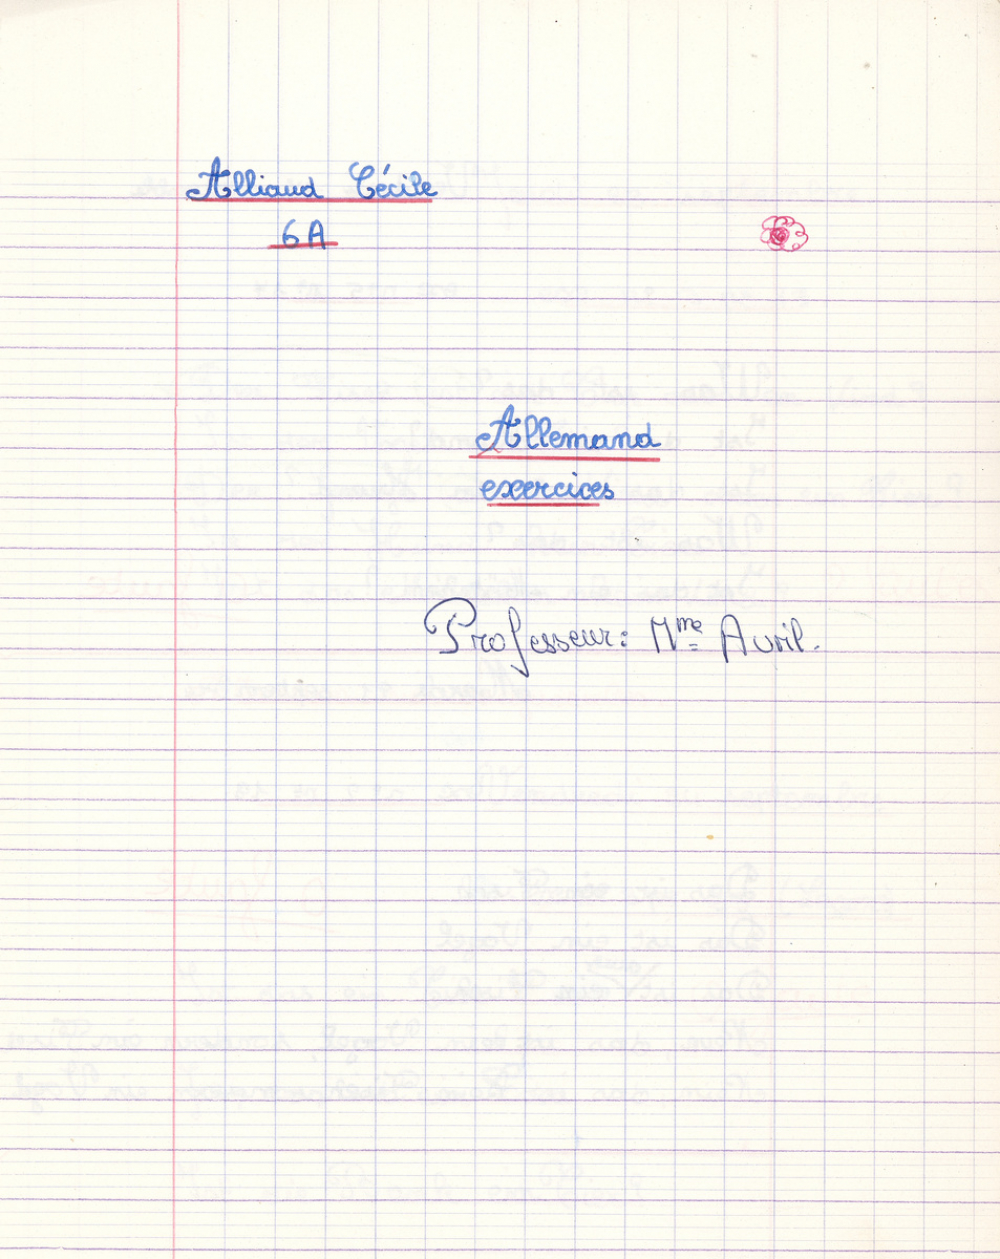 Alliaud Cécile
6A
Allemand
exercices
Professeur: Mme Avril.